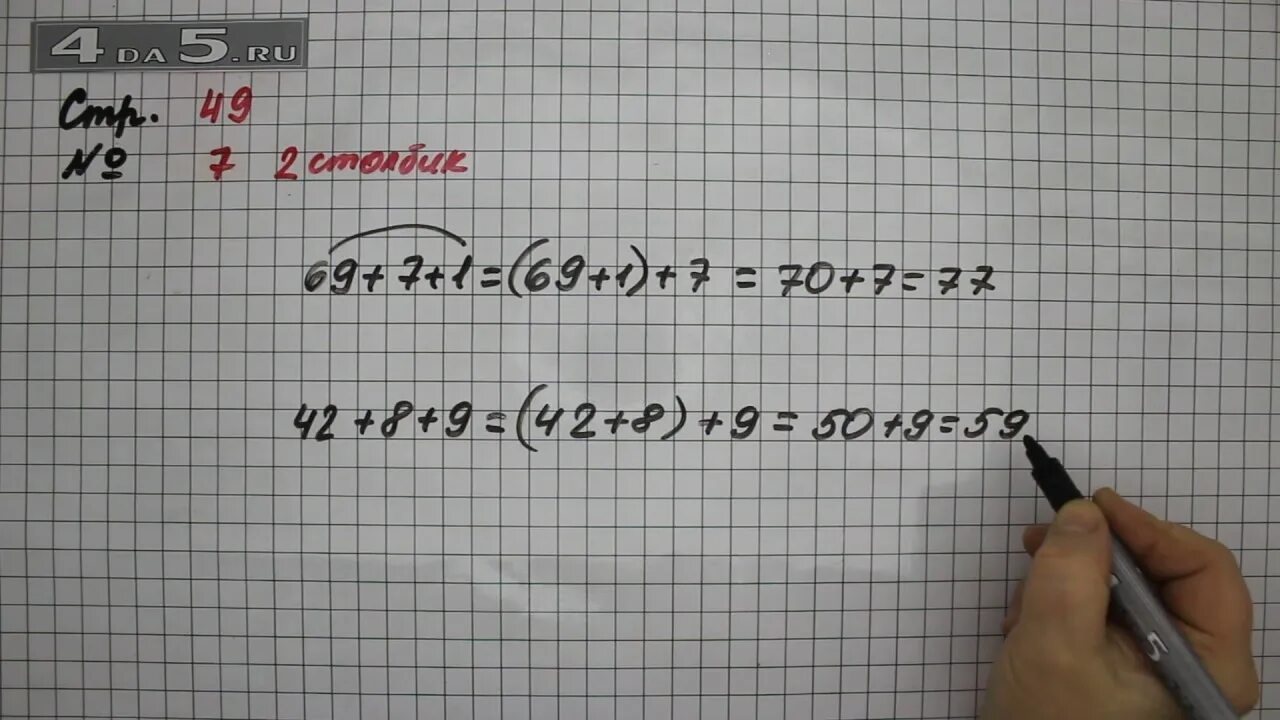 4DA5.RU
Стр. 49
№ 7 2 столбик
69+7+1=(69+1)+7=70+7=77
42+8+9=(42+8)+9=50+9=59
5